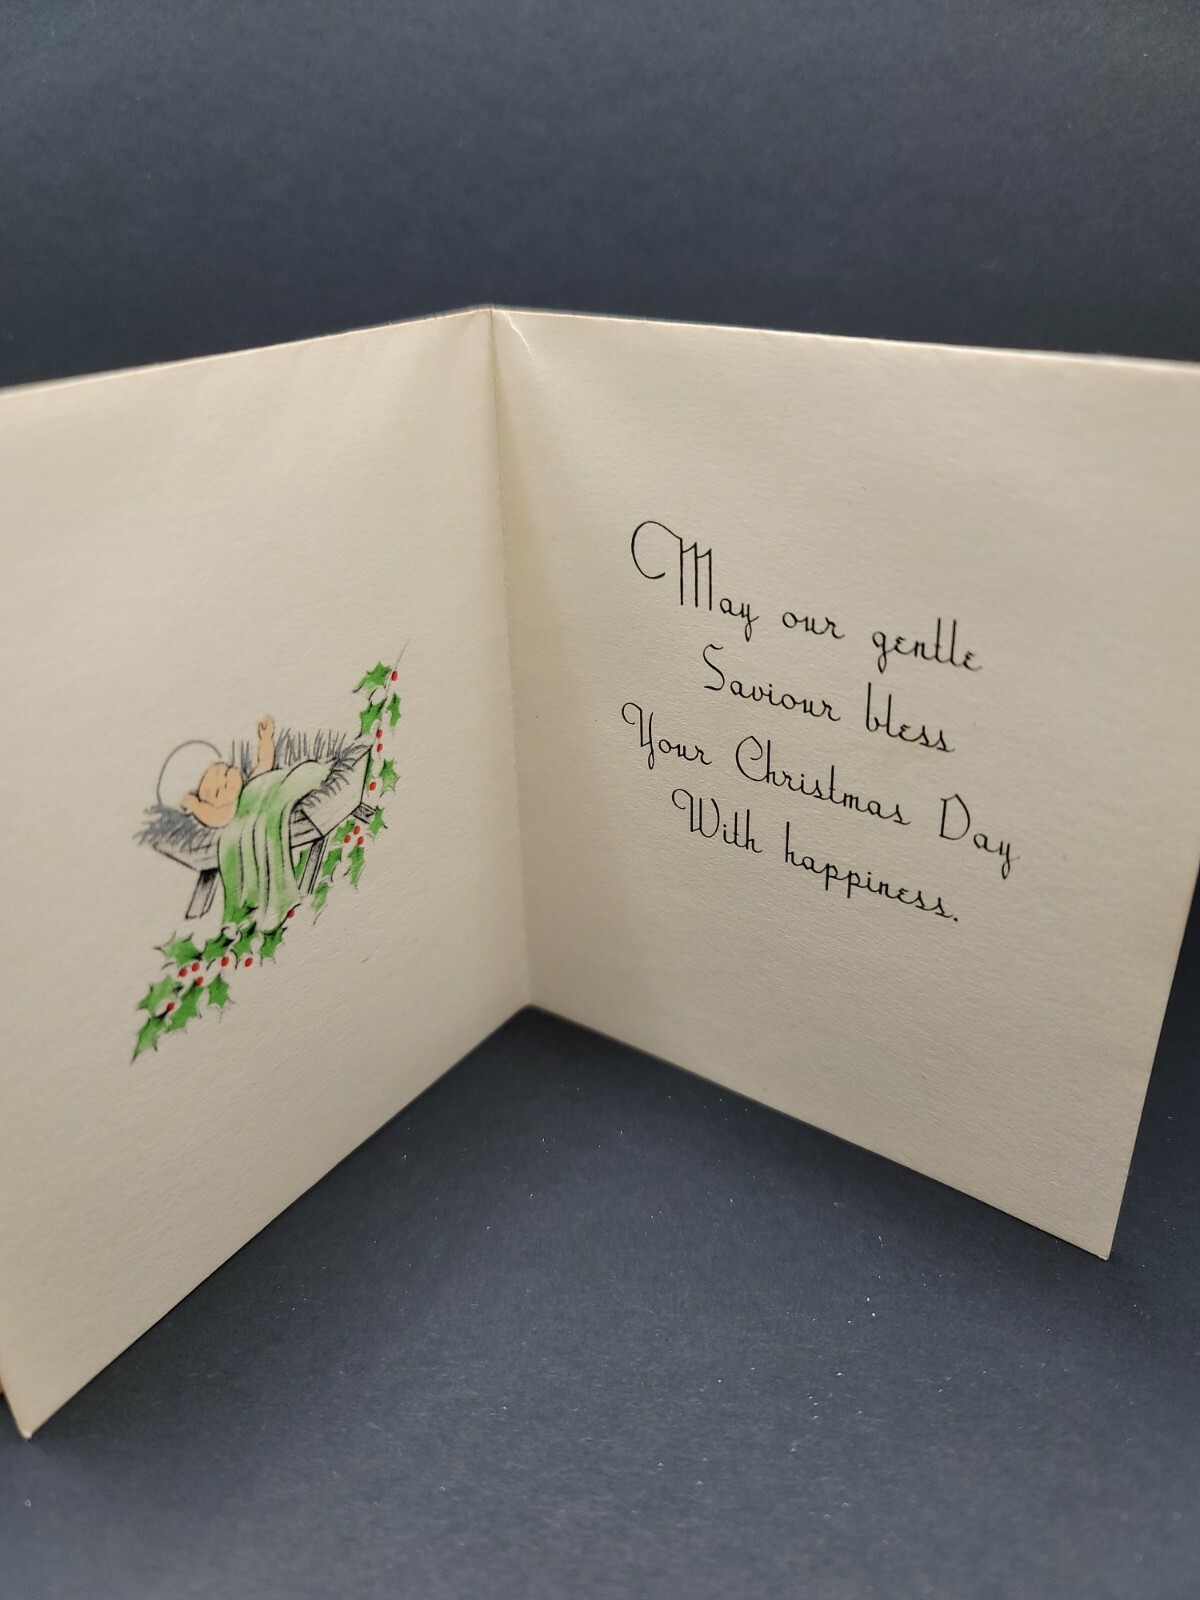 May our gentle
Saviour bless
Your Christmas Day
With happiness.